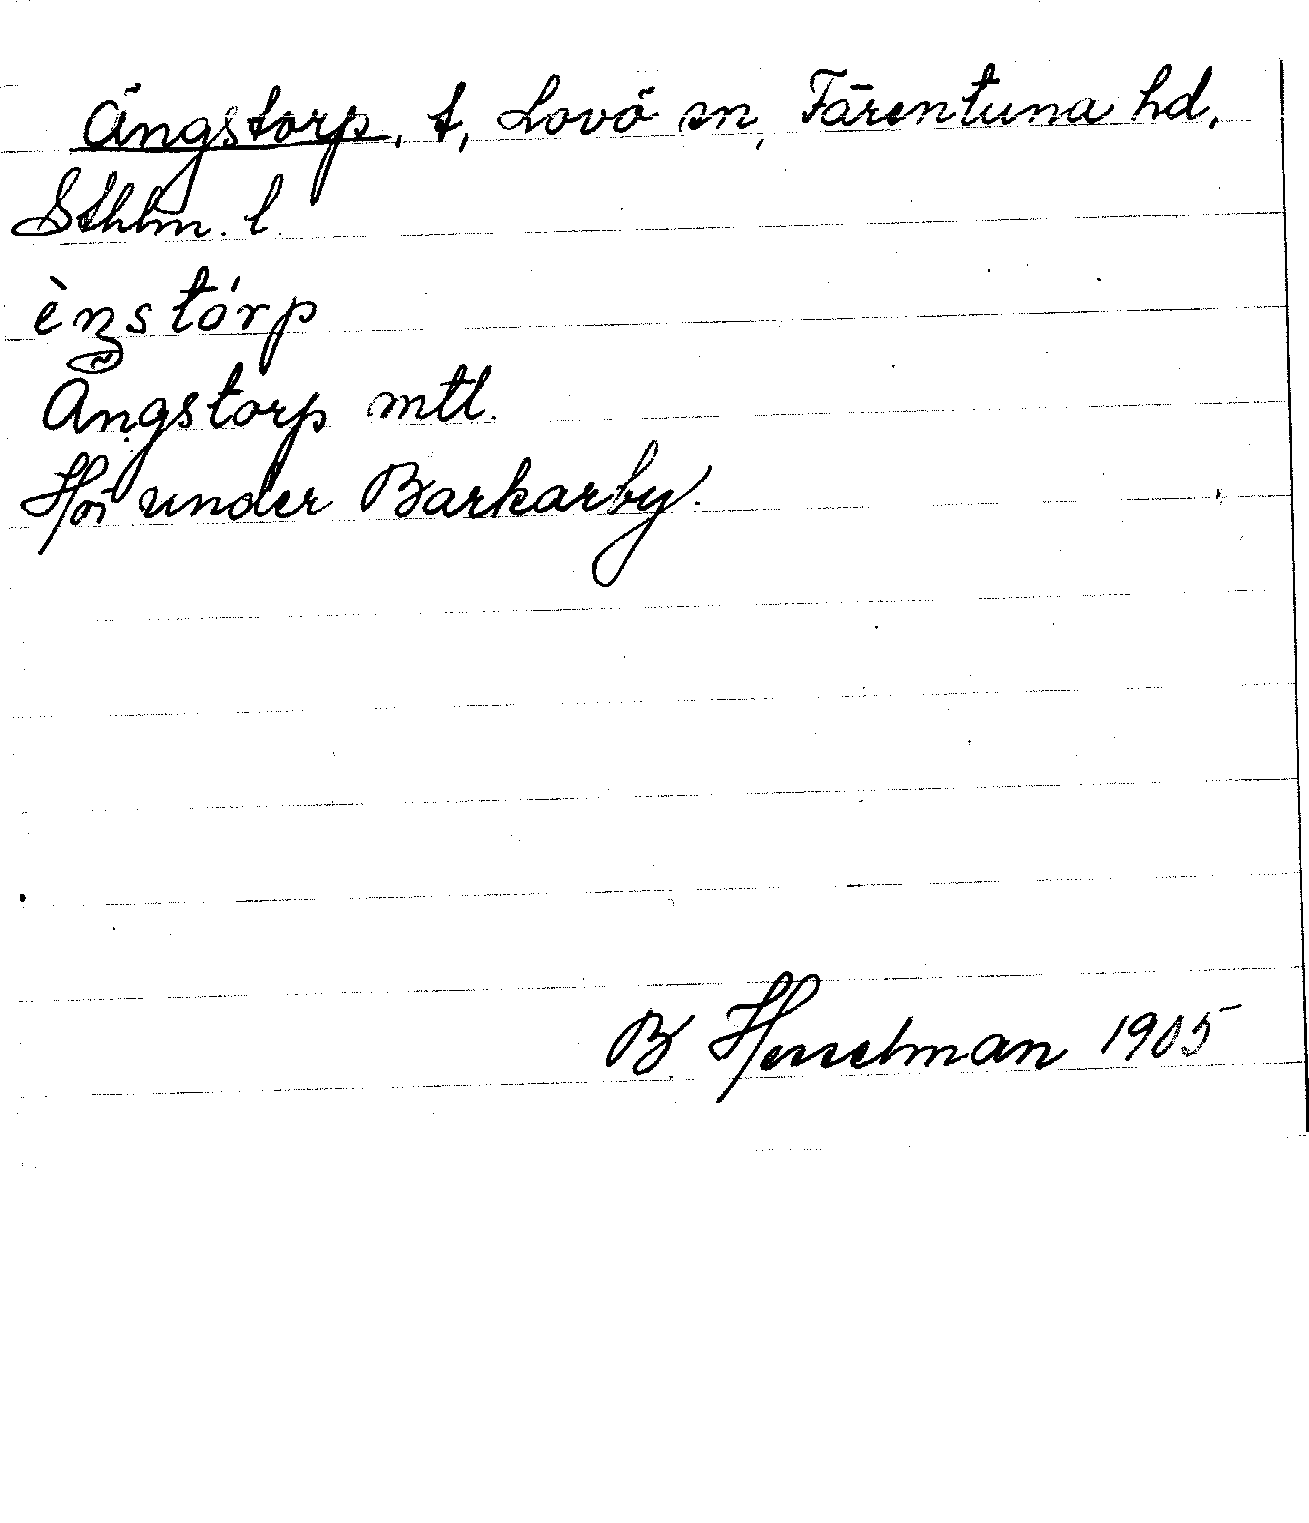 Ängstorp, t, Lovö sn, Färentuna hd,
Sthlm. l
èŋstórp
Ängstorp mtl.
Hör under Barkarby.
B Hesselman 1905